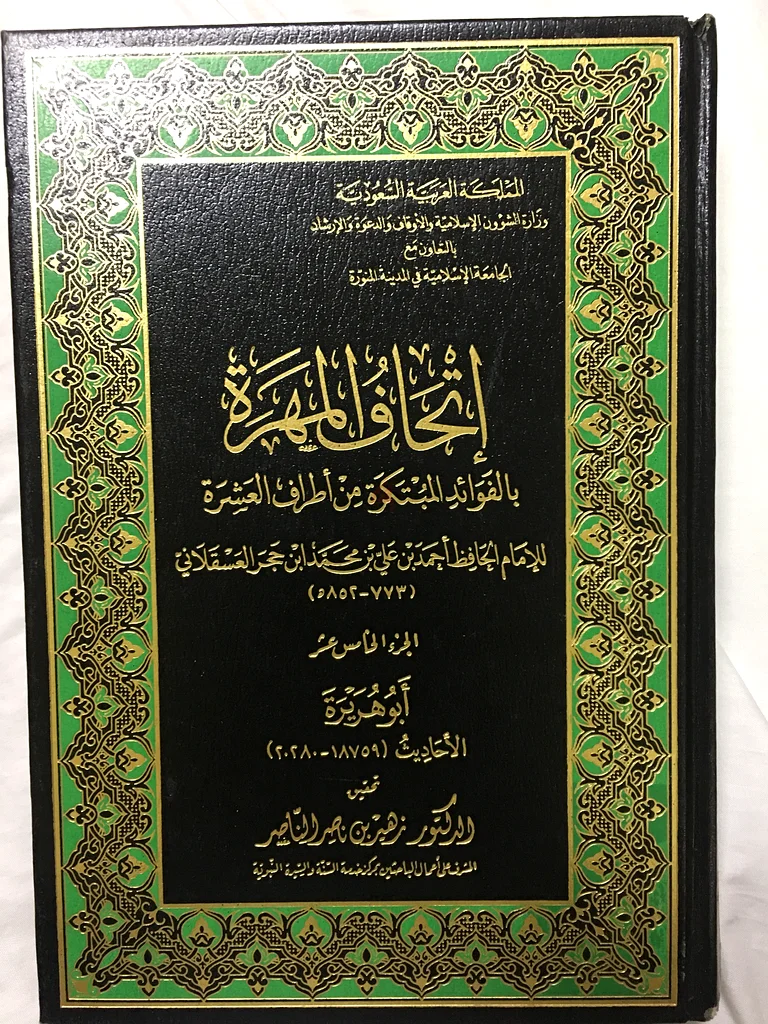 المملكة العربية السعودية
وزارة الشؤون الإسلامية والأوقاف والدعوة والإرشاد
بالتعاون مع
الجامعة الإسلامية في المدينة المنورة
إتحاف المهرة
بالفوائد المبتكرة من أطراف العشرة
للإمام الحافظ أحمد بن علي بن محمد ابن حجر العسقلاني
(٧٧٣-٨٥٢ه)
الجزء الخامس عشر
أبو هريرة
الأحاديث (١٨٧٥٩-٢٠٢٨٠)
تحقيق
الدكتور زهير بن ناصر الناصر
المشرف على أعمال الباحثين بمركز خدمة السنة والسيرة النبوية